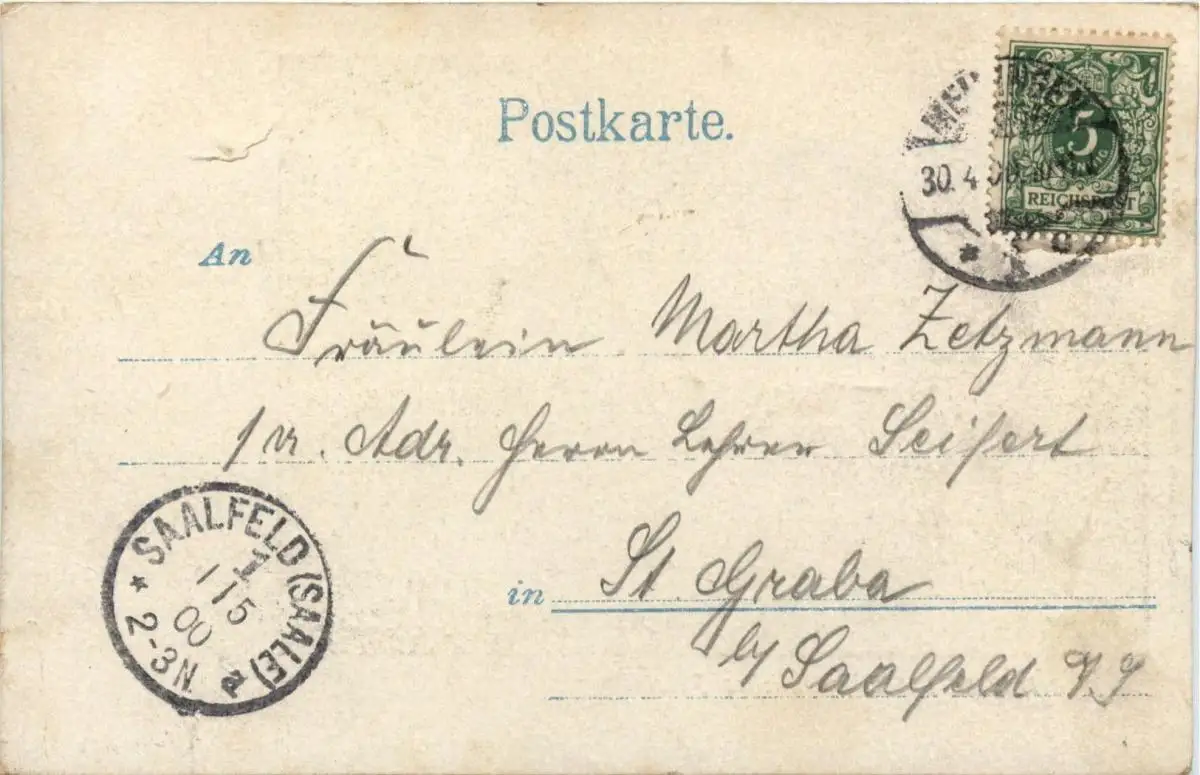 Postkarte.
5
REICHSPOST
30.4
An
Fräulein Martha Zetzmann
Adr. Herrn Lehrer Seifert
in St Graba
b/ Saalfeld
SAALFELD (SAALE)
1/5
00
2-3N